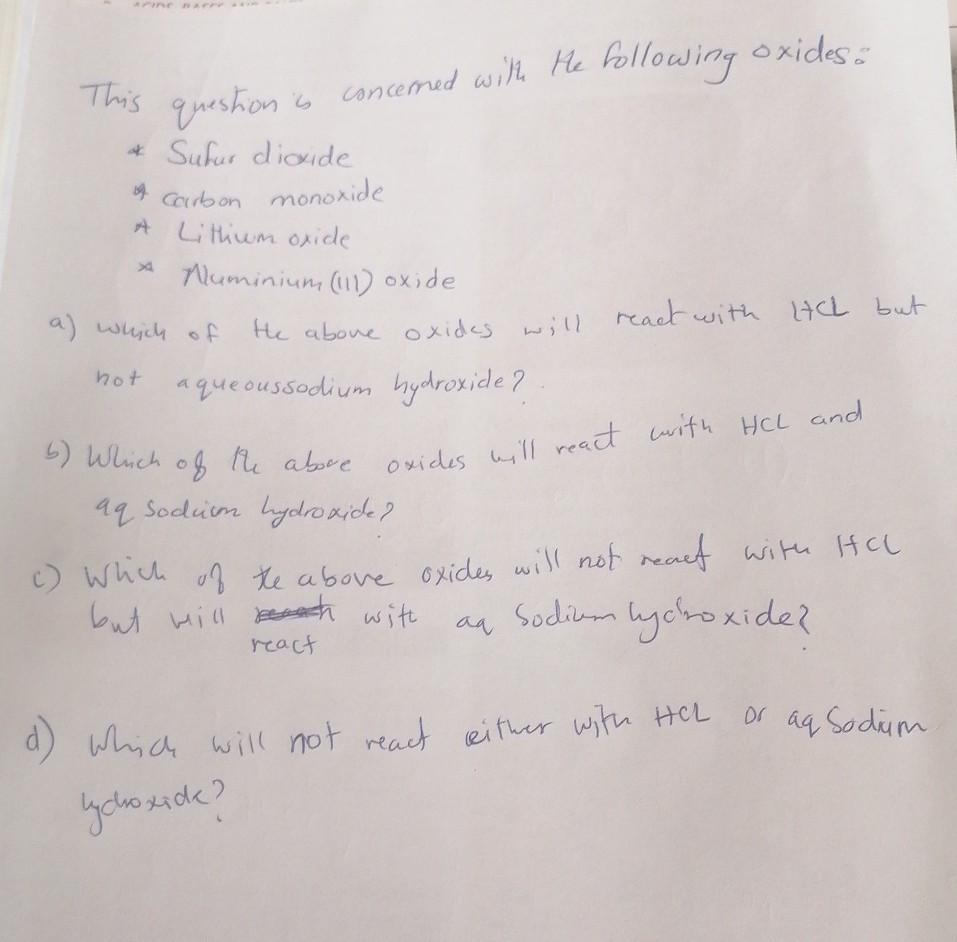 This question is concerned with the following oxides:
* Sufur dioxide
* carbon monoxide
* Lithium oxide
* Aluminium (III) oxide
a) which of the above oxides will react with HCL but
not aqueoussodium hydroxide?
b) Which of the above oxides will react with HCL and
aq sodium hydroxide?
c) Which of the above oxides will not react with HCL
but will with aq sodium hydroxide?
react
d) which will not react either with HCL or aq sodium
hydroxide?